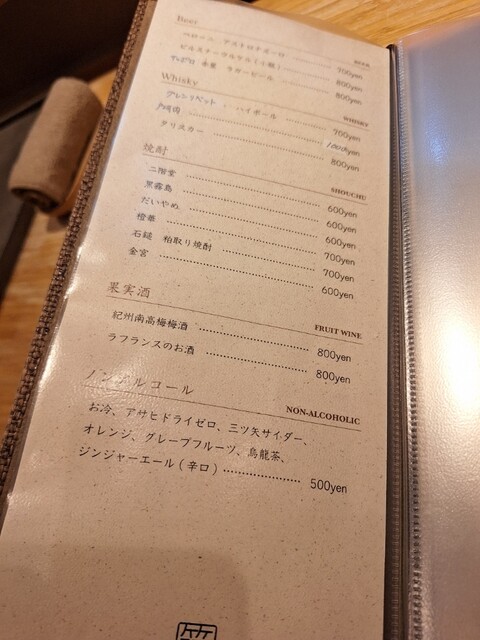 Beer
BEER
ペローニ アズーロ 700yen
ピルスナーウルケル(小瓶) 800yen
ラガービール 800yen
Whisky
WHISKY
グレンリベット ハイボール 700yen
1000yen
タリスカー 800yen
焼酎
SHOUCHU
二階堂 600yen
黒霧島 600yen
だいやめ 600yen
橙華 700yen
石鎚 粕取り焼酎 700yen
金宮 600yen
果実酒
FRUIT WINE
紀州南高梅梅酒 800yen
ラフランスのお酒 800yen
ノンアルコール
NON-ALCOHOLIC
お冷、アサヒドライゼロ、三ツ矢サイダー、
オレンジ、グレープフルーツ、烏龍茶、
ジンジャーエール(辛口) 500yen